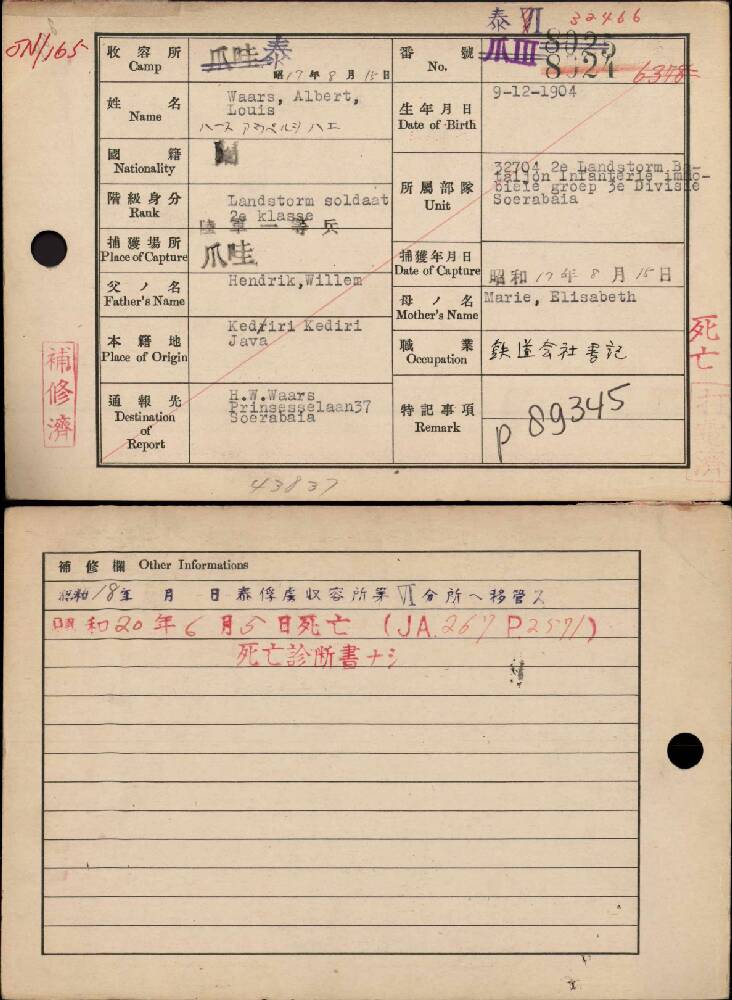 泰 VI 32466
JN/165
爪III 8025
8024
6378
收容所 Camp 爪哇 泰
昭17年8月15日
番號 No.
姓名 Name Waars, Albert, Louis
生年月日 Date of Birth 9-12-1904
國籍 Nationality
階級身分 Rank Landstorm soldaat 2e klasse
陸軍一等兵
所屬部隊 Unit 32704 2e Landstorm Ba-
taljon Infanterie immo-
biele groep 3e Divisie
Soerabaia
捕獲場所 Place of Capture 爪哇
捕獲年月日 Date of Capture 昭和17年8月15日
父ノ名 Father's Name Hendrik,Willem
母ノ名 Mother's Name Marie, Elisabeth
本籍地 Place of Origin Kediri Kediri
Java
職業 Occupation 鉄道会社書記
通報先 Destination of Report H.W.Waars
Prinsesselaan37
Soerabaia
特記事項 Remark P 89345
補修濟
死亡
43837
補修欄 Other Informations
昭和18年 月 日泰俘虜収容所第VI分所ヘ移管ス
昭和20年6月5日死亡 (JA.267 P2571)
死亡診断書ナシ